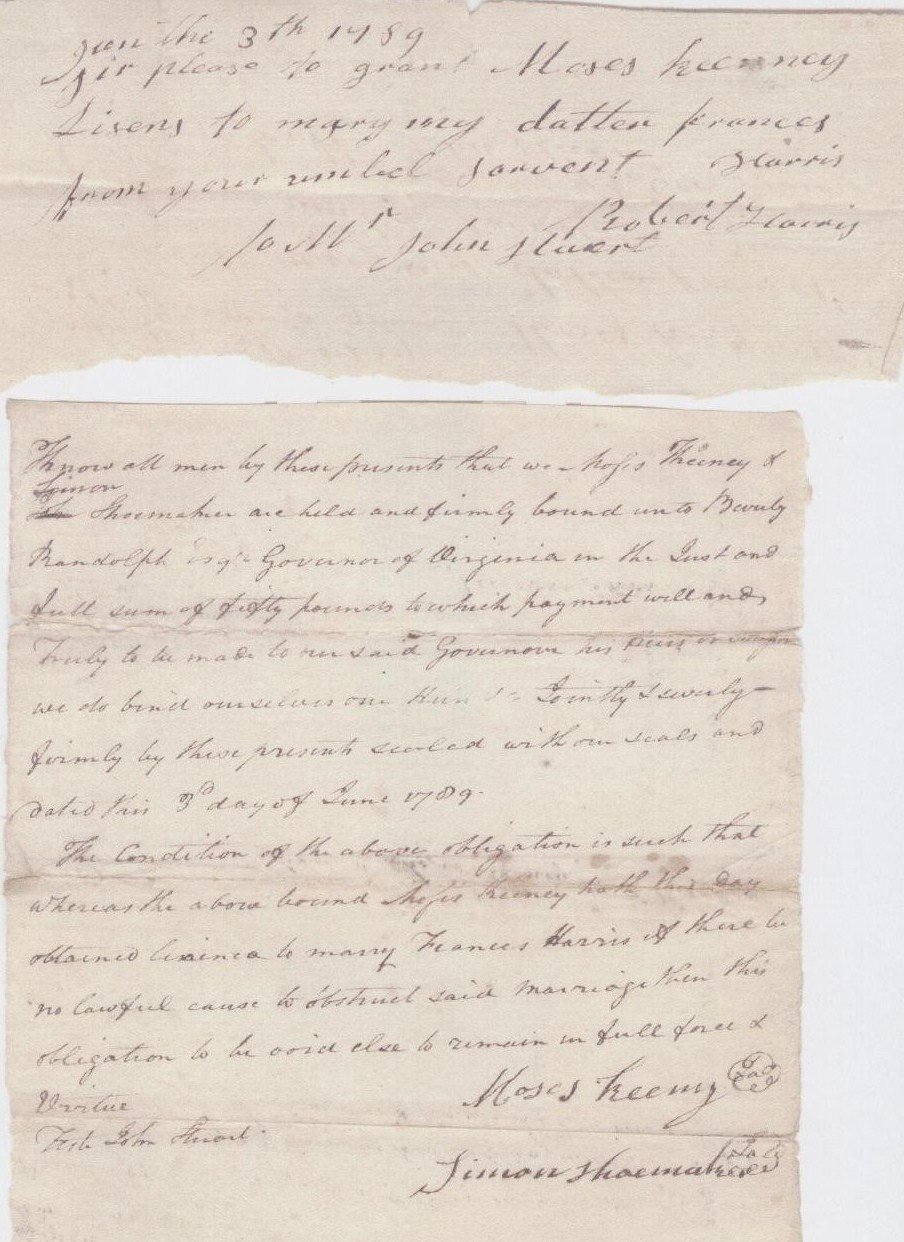 Jun the 3th 1789
Sir please to grant Moses Keenney
Lisens to mary my datter frances
Harris
from your umbel sarvent
Robert Harris
to Mr John Stuert
Know all men by these presents that we Moses Keeney &
Simon
Shoemaker are held and firmly bound unto Beverly
Randolph Esqr Governor of Virginia in the Just and
full sum of fifty pounds to which payment well and
Truly to be made to our said Governor his
we do bind ourselves our Heirs &c Jointly & severly
firmly by these presents sealed with our seals and
dated this 3d day of June 1789
The Condition of the above obligation is such that
whereas the above bound Moses Keeney hath this Day
obtained lisence to marry Frances Harris if there be
no lawful cause to obstruct said marriage then this
obligation to be void else to remain in full force &
Virtue
Moses Keeny
Teste John Stuart
Simon Shoemaker